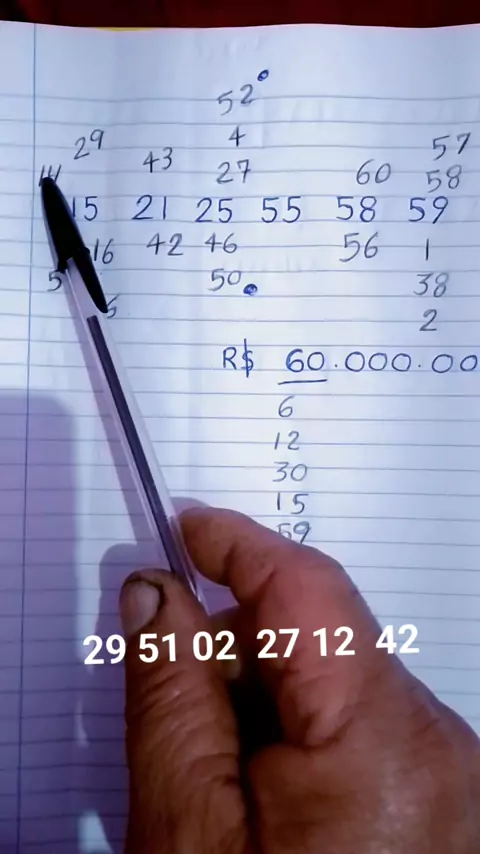 52
29 4 57
14 43 27 60 58
15 21 25 55 58 59
16 42 46 56 1
5 50 38
5 2
R$ 60.000.00
6
12
30
15
59
29 51 02 27 12 42